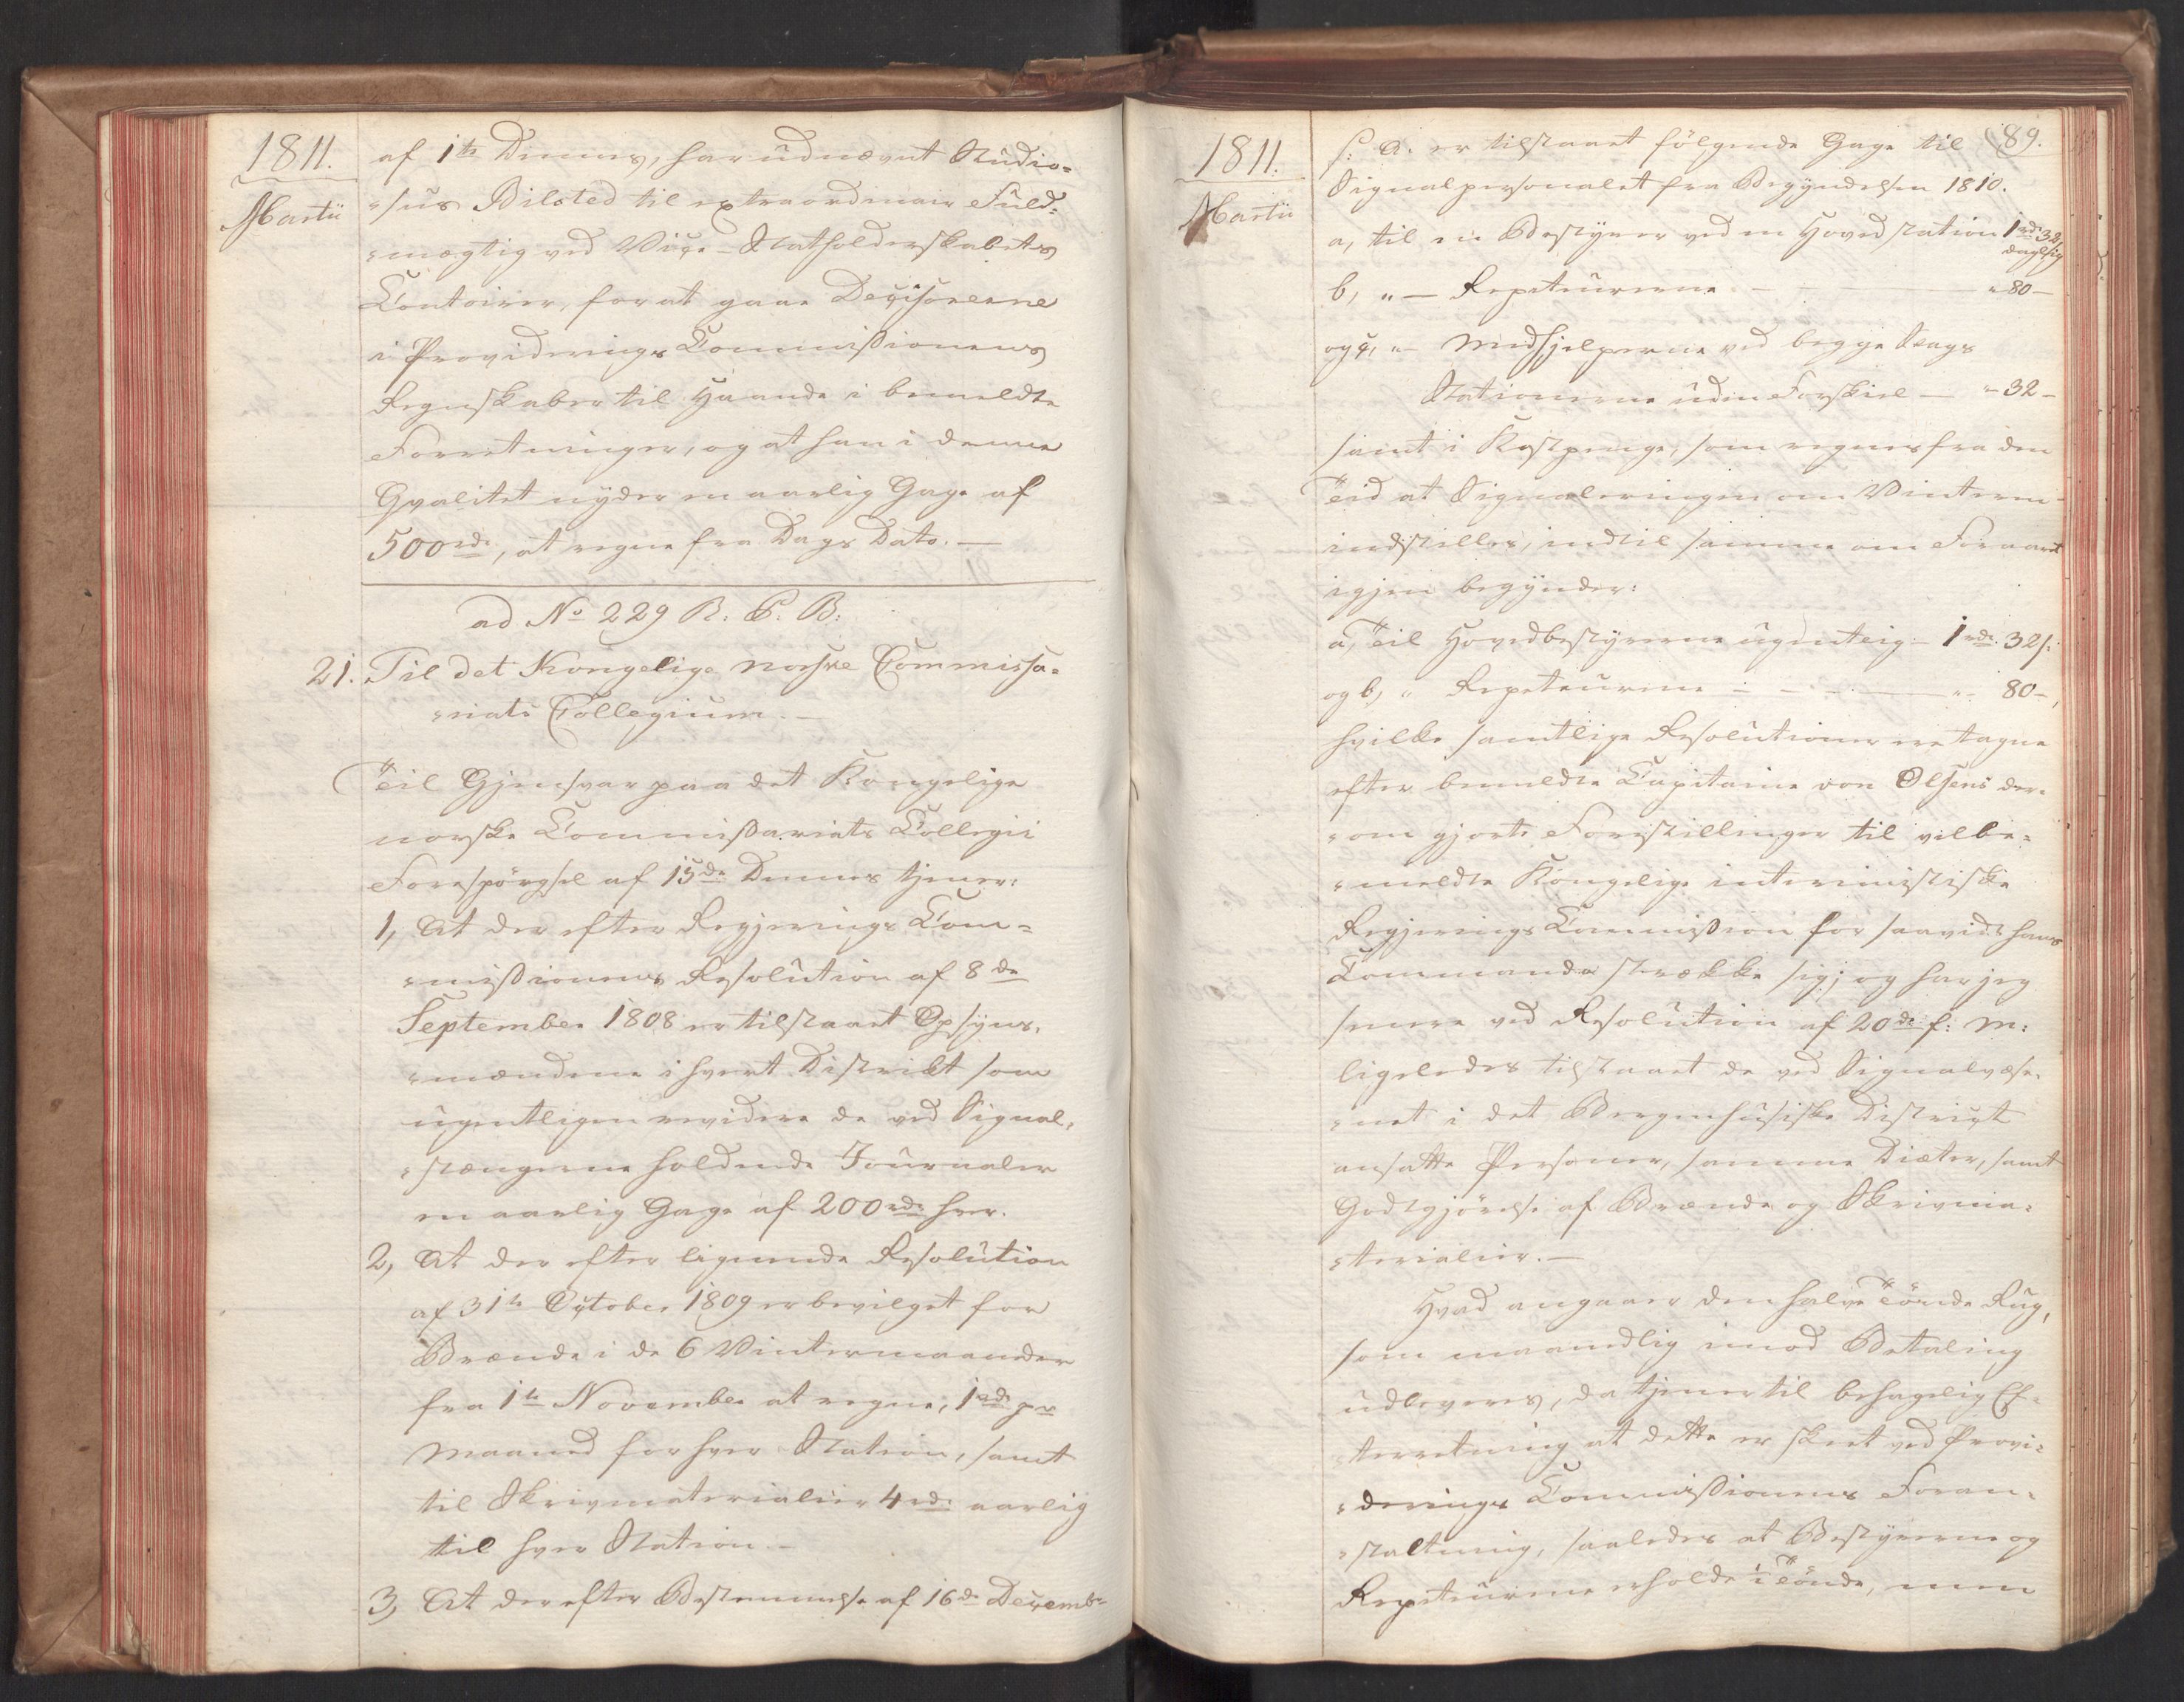 1811.
Martii
af 1te Dennes, har udnævnt Studio=
=sus Bilsted til extraordinair Fuld=
=mægtig ved Vice-Statholderskabets
Contoirer, for at gaae Decisorerne
i Providerings Commissionens
Regnskaber til Haande i bemeldte
Forretninger, og at han i denne
Qvalitet nyder en aarlig Gage af
500 rd:, at regne fra Dags Dato. —
ad No 229 R. C. B:
21. Til det Kongelige norske Commissa=
=riats Collegium. —
Til Gjensvar paa det Kongelige
norske Commissariats Collegii
Forespörgsel af 15de Dennes tjener:
1, At der efter Regjerings Com=
=missionens Resolution af 8de
September 1808 er tilstaaet Opsyns=
=mændene i hvert District som
ugentligen revidere de ved Signal=
=stængerne holdende Journaler
en aarlig Gage af 200 rd: hver.
2, At der efter lignende Resolution
af 31te October 1809 er bevilget for
Brænde i de 6 Vintermaaneder
fra 1te November at regne, 1 rd: pr
Maaned for hver Station, samt
til Skrivmaterialier 4 rd: aarlig
til hver Station. —
3, At der efter Bestemmelse af 16de Decembr
1811.
Martii
89.
f: A: er tilstaaet fölgende Gage til
Signalpersonalet fra Begyndelsen 1810.
a, til en Bestyrer ved en Hovedstation 1 rd: 32 s
daglig
b, " — Repeteurerne — — " 80 —
og c, " — Medhjelperne ved begge Slags
Stationerne uden Forskiel — " 32 —
samt i Kostpenge, som regnes fra den
Tid at Signaleringen om Vinteren
indstilles, indtil samme om Foraaret
igjen begynder:
a, Til Hovedbestyrerne ugentlig — 1 rd: 32 s:
og b, " Repeteurerne — — " 80 —,
hvilke samtlige Resolutioner ere tagne
efter bemeldte Capitaine von Olsens der=
=om gjorte Forestillinger til velbe=
=meldte Kongelige interimistiske
Regjerings Commission for saavidt hans
Commando strække sig; og har jeg
senere ved Resolution af 20de f: M:
ligeledes tilstaaet de ved Signalvæse=
=net i det Bergenhusiske District
ansatte Personer, samme Diæter, samt
Godtgjörelse af Brænde og Skrivma=
=terialier. —
Hvad angaaer den halve Tönde Rug,
som maanedlig imod Betaling
udleveres, da tjener til behagelig Ef=
terretning at dette er skeet ved Provi=
=derings Commissionens Foran=
=staltning, saaledes at Bestyrerne og
Repeteurerne erholde 1 Tönde, men